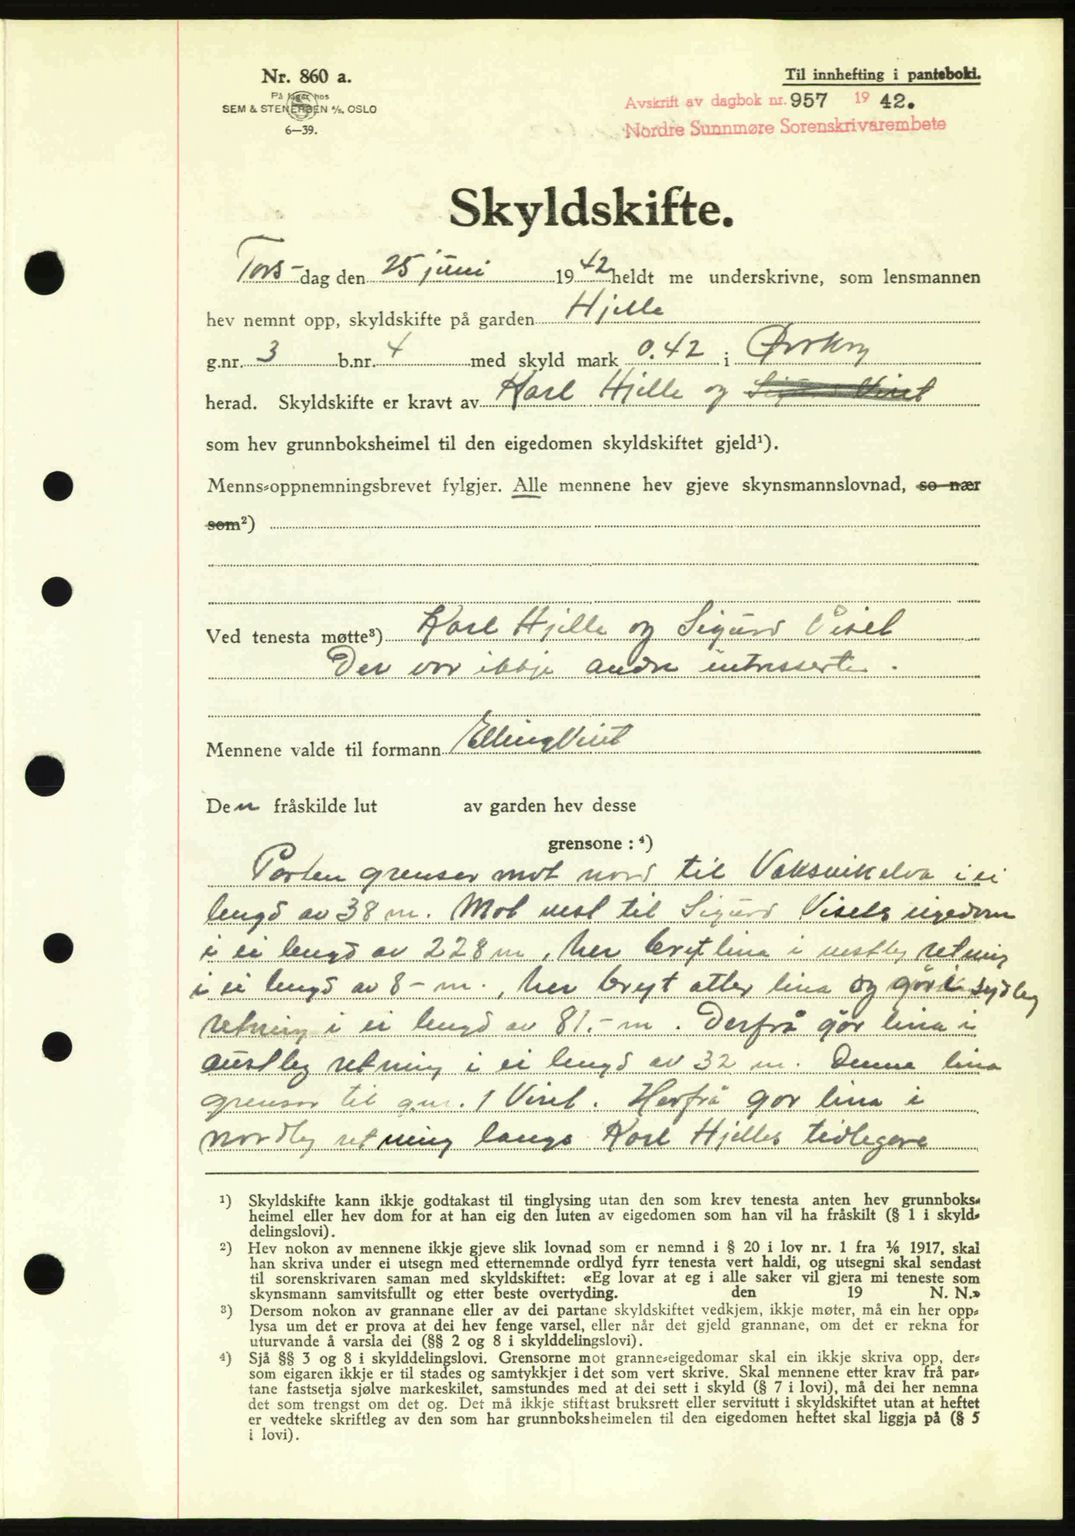 Nr. 860 a.
På lager hos
SEM & STENERSEN A/S, OSLO
6—39.
Til innhefting i panteboki.
Avskrift av dagbok nr. 957 1942.
Nordre Sunnmøre Sorenskrivarembete
Skyldskifte.
Tors-dag den 25 juni 1942 heldt me underskrivne, som lensmannen
hev nemnt opp, skyldskifte på garden Hjelle
g.nr. 3 b.nr. 4 med skyld mark 0.42 i Ørskog
herad. Skyldskifte er kravt av Karl Hjelle og Sigurd Viset
som hev grunnboksheimel til den eigedomen skyldskiftet gjeld¹).
Menns-oppnemningsbrevet fylgjer. Alle mennene hev gjeve skynsmannslovnad, so nær
som²)
Ved tenesta møtte³) Karl Hjelle og Sigurd Viset
Der var ikkje andre intresserte.
Mennene valde til formann Elling Viset
Den fråskilde lut av garden hev desse
grensone : ⁴)
Parten grenser mot nord til Vaksvikelva i ei
lengd av 38 m. Mot vest til Sigurd Visets eigedom
i ei lengd av 228 m, her bryt lina i vestleg retning
i ei lengd av 8 - m., her bryt atter lina og går i sydleg
retning i ei lengd av 81.- m. Derfrå går lina i
austleg retning i ei lengd av 32 m. Denne lina
grensar til g.nr. 1 Viset. Herfrå gør lina i
nordleg retning langs Karl Hjelles tidlegere
¹) Skyldskifte kann ikkje godtakast til tinglysing utan den som krev tenesta anten hev grunnboks-
heimel eller hev dom for at han eig den luten av eigedomen som han vil ha fråskilt (§ 1 i skyld-
delingslovi).
²) Hev nokon av mennene ikkje gjeve slik lovnad som er nemnd i § 20 i lov nr. 1 fra 1/6 1917, skal
han skriva under ei utsegn med etternemnde ordlyd fyrr tenesta vert haldi, og utsegni skal sendast
til sorenskrivaren saman med skyldskiftet: «Eg lovar at eg i alle saker vil gjera mi teneste som
skynsmann samvitsfullt og etter beste overtyding. den 19 N. N.»
³) Dersom nokon av grannane eller av dei partane skyldskiftet vedkjem, ikkje møter, må ein her opp-
lysa um det er prova at dei hev fenge varsel, eller når det gjeld grannane, om det er rekna for
uturvande å varsla dei (§§ 2 og 8 i skylddelingslovi).
⁴) Sjå §§ 3 og 8 i skylddelingslovi. Grensorne mot granne-eigedomar skal ein ikkje skriva opp, der-
som eigaren ikkje er til stades og samtykkjer i det som vert skrive. Skal mennene etter krav frå par-
tane fastsetja sjølve markeskilet, samstundes med at dei sett i skyld (§ 7 i lovi), må dei her nemna
det som trengst om det og. Det må ikkje stiftast bruksrett eller servitutt i skyldskiftet utan at heftet
er vedteke skriftleg av den som har grunnboksheimelen til den eigedomen heftet skal liggja på (§ 5
i lovi).